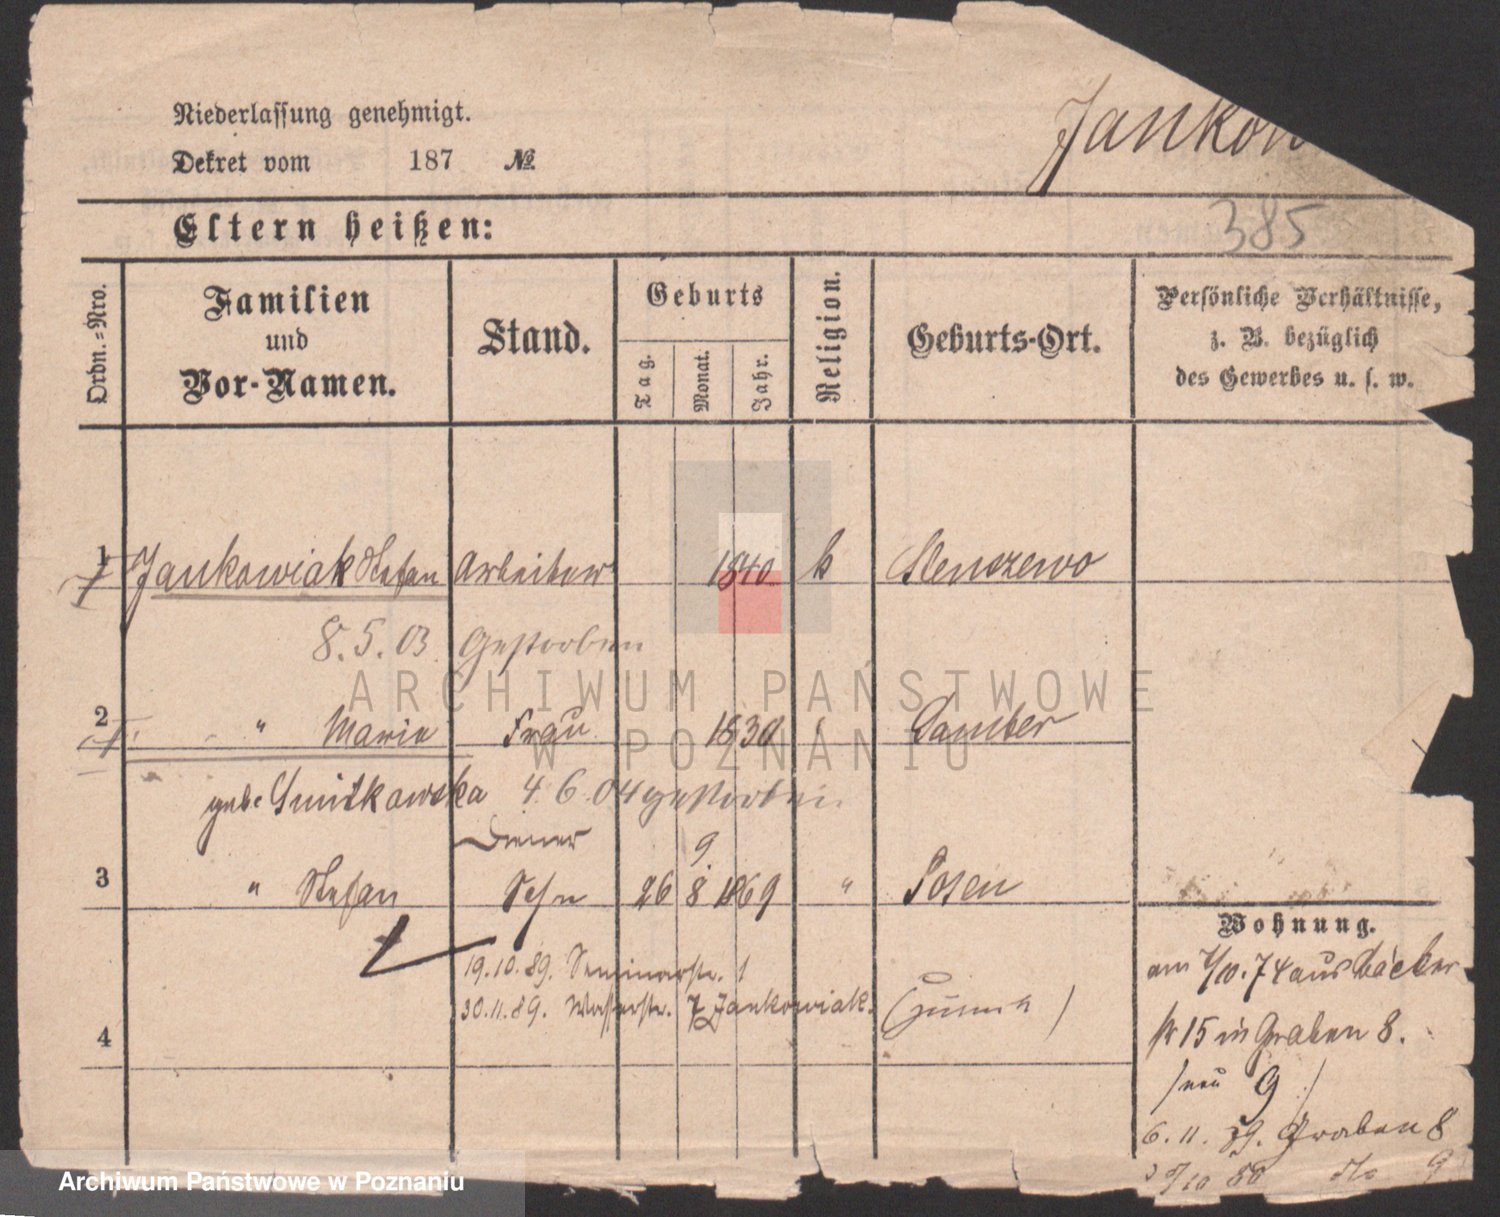 Niederlassung genehmigt.
Dekret vom 187 №
Jankow
385
Eltern heißen:
Ordn.=Nro.
Familien und Vor-Namen.
Stand.
Geburts
Tag. Monat. Jahr.
Religion.
Geburts-Ort.
Persönliche Verhältnisse,
z. B. bezüglich
des Gewerbes u. s. w.
1 Jankowiak Stefan Arbeiter 1840 k Stenszewo
8.5.03 Gestorben
2 " Marie Frau 1839 Samter
geb. 4.6.04 gestorben
Diener 9
3 " Stefan Sohn 26 8 1869 " Posen
19.10.89. Seminarstr. 1
30.11.89. Wasserstr. 7 Jankowiak.
4
Wohnung.
am 7/10.74 aus Bäcker
str 15 in Graben 8.
/neu 9/
6.11. 79. Graben 8
10 80 9
ARCHIWUM PAŃSTWOWE
W POZNANIU
Archiwum Państwowe w Poznaniu